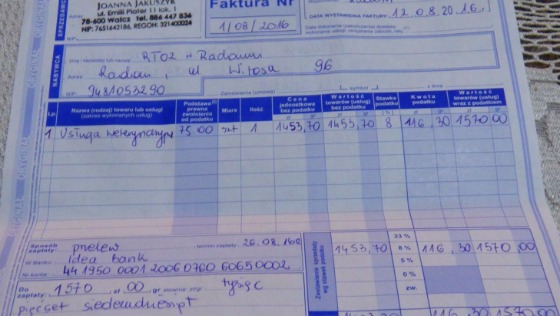 JOANNA JAKUSZYK
ul. Emilii Plater 11 lok. 1
78-600 Wałcz tel. 884 447 836
NIP: 7651642188, REGON: 321400024
SPRZEDAWCA
Faktura Nr
1/08/2016
DATA WYSTAWIENIA FAKTURY
12.08.2016 r.
NABYWCA
RTOZ w Radomiu
Adres
Radom, ul Witosa 96
NIP
9481053290
Lp. Nazwa (rodzaj) towaru lub usługi (zakres wykonanych usług) Podstawa prawna zwolnienia od podatku Miara Ilość Cena jednostkowa bez podatku Wartość towarów (usług) bez podatku Stawka podatku Kwota podatku Wartość towarów (usług) wraz z podatkiem
1 Usługa weterynaryjna 75 00 szt 1 1453,70 1453,70 8 116,30 1570,00
Sposób zapłaty: przelew termin zapłaty: 26.08.16
Nr Banku Idea Bank
Nr konta 44 1950 0001 2006 0760 6065 0002
1453,70 8% 116,30 1570,00
23%
5%
0%
zw.
Do zapłaty: 1570 zł 00 gr tysiąc
pięćset siedemdziesiąt
116,30 1570,00